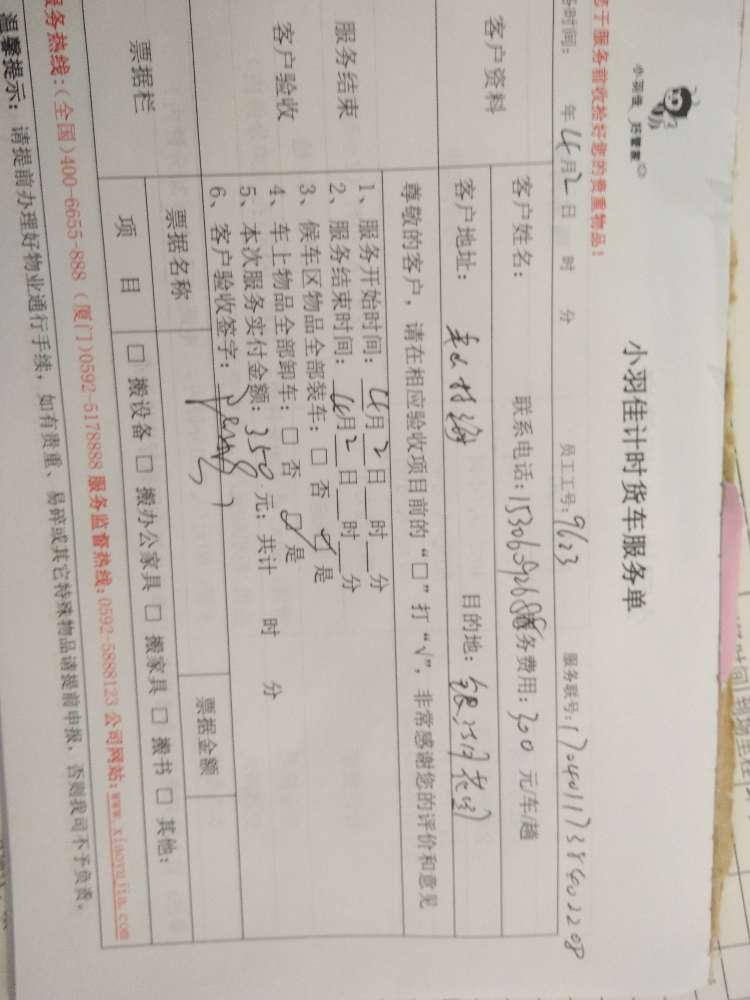 小羽佳 好管家
小羽佳计时货车服务单
于服务前收拾好您的贵重物品!
时间: 年4月2日 时 分 员工工号:9623 服务联号:
客户资料
客户姓名: 联系电话: 服务费用:300 元/车/趟
客户地址: 目的地:
服务结束
客户验收
尊敬的客户,请在相应验收项目前的“□”打“√”,非常感谢您的评价和意见
1、服务开始时间:4月2日 时 分
2、服务结束时间:4月2日 时 分
3、候车区物品全部装车:□ 否 ☑ 是
4、车上物品全部卸车:□ 否 ☑ 是
5、本次服务实付金额:350元;共计 时 分
6、客户验收签字:
票据栏
票据名称 票据金额
项 目 □ 搬设备 □ 搬办公家具 □ 搬家具 □ 搬书 □ 其他:
服务热线:(全国)400-6655-888 (厦门)0592-5178888 服务监督热线:0592-5888123 公司网站:www.xiaoyujia.com
温馨提示: 请提前办理好物业通行手续,如有贵重、易碎或其它特殊物品请提前申报,否则我司不予负责。